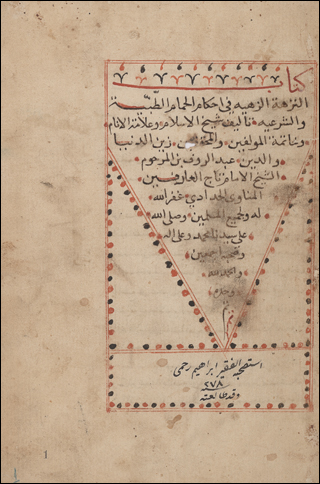 كتاب
النزهة الزهيه في احكام الحمام الطبّية
والشرعيه تاليف شيخ الاسلام وعلامة الانام
وخاتمة المولفين والمحققين زين الدنيا
والدين عبد الروف بن المرحوم
الشيخ الامام تاج العارفين
المناوي الحدادي غفر الله
له ولجميع المسلمين وصلى الله
على سيدنا محمد وعلى اله
وصحبه اجمعين
والحمد لله
وحده
استصحبه الفقير ابراهيم رحمي
٢٧٨
وقد طالعته
1